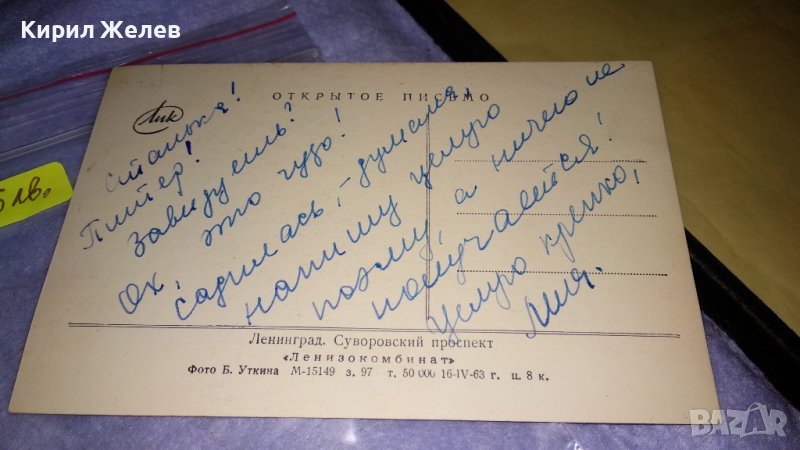 Кирил Желев
5 лв.
Лик
ОТКРЫТОЕ ПИСЬМО
Станька!
Питер!
Завидуешь?
Ох, это чудо!
Садилась, – думала,
напишу целую
поэму, а ничего не
получается!
Целую крепко,
Лиля.
Ленинград. Суворовский проспект
«Ленизокомбинат»
Фото Б. Уткина М-15149 з. 97 т. 50 000 16-IV-63 г. ц. 8 к.
BAZAR